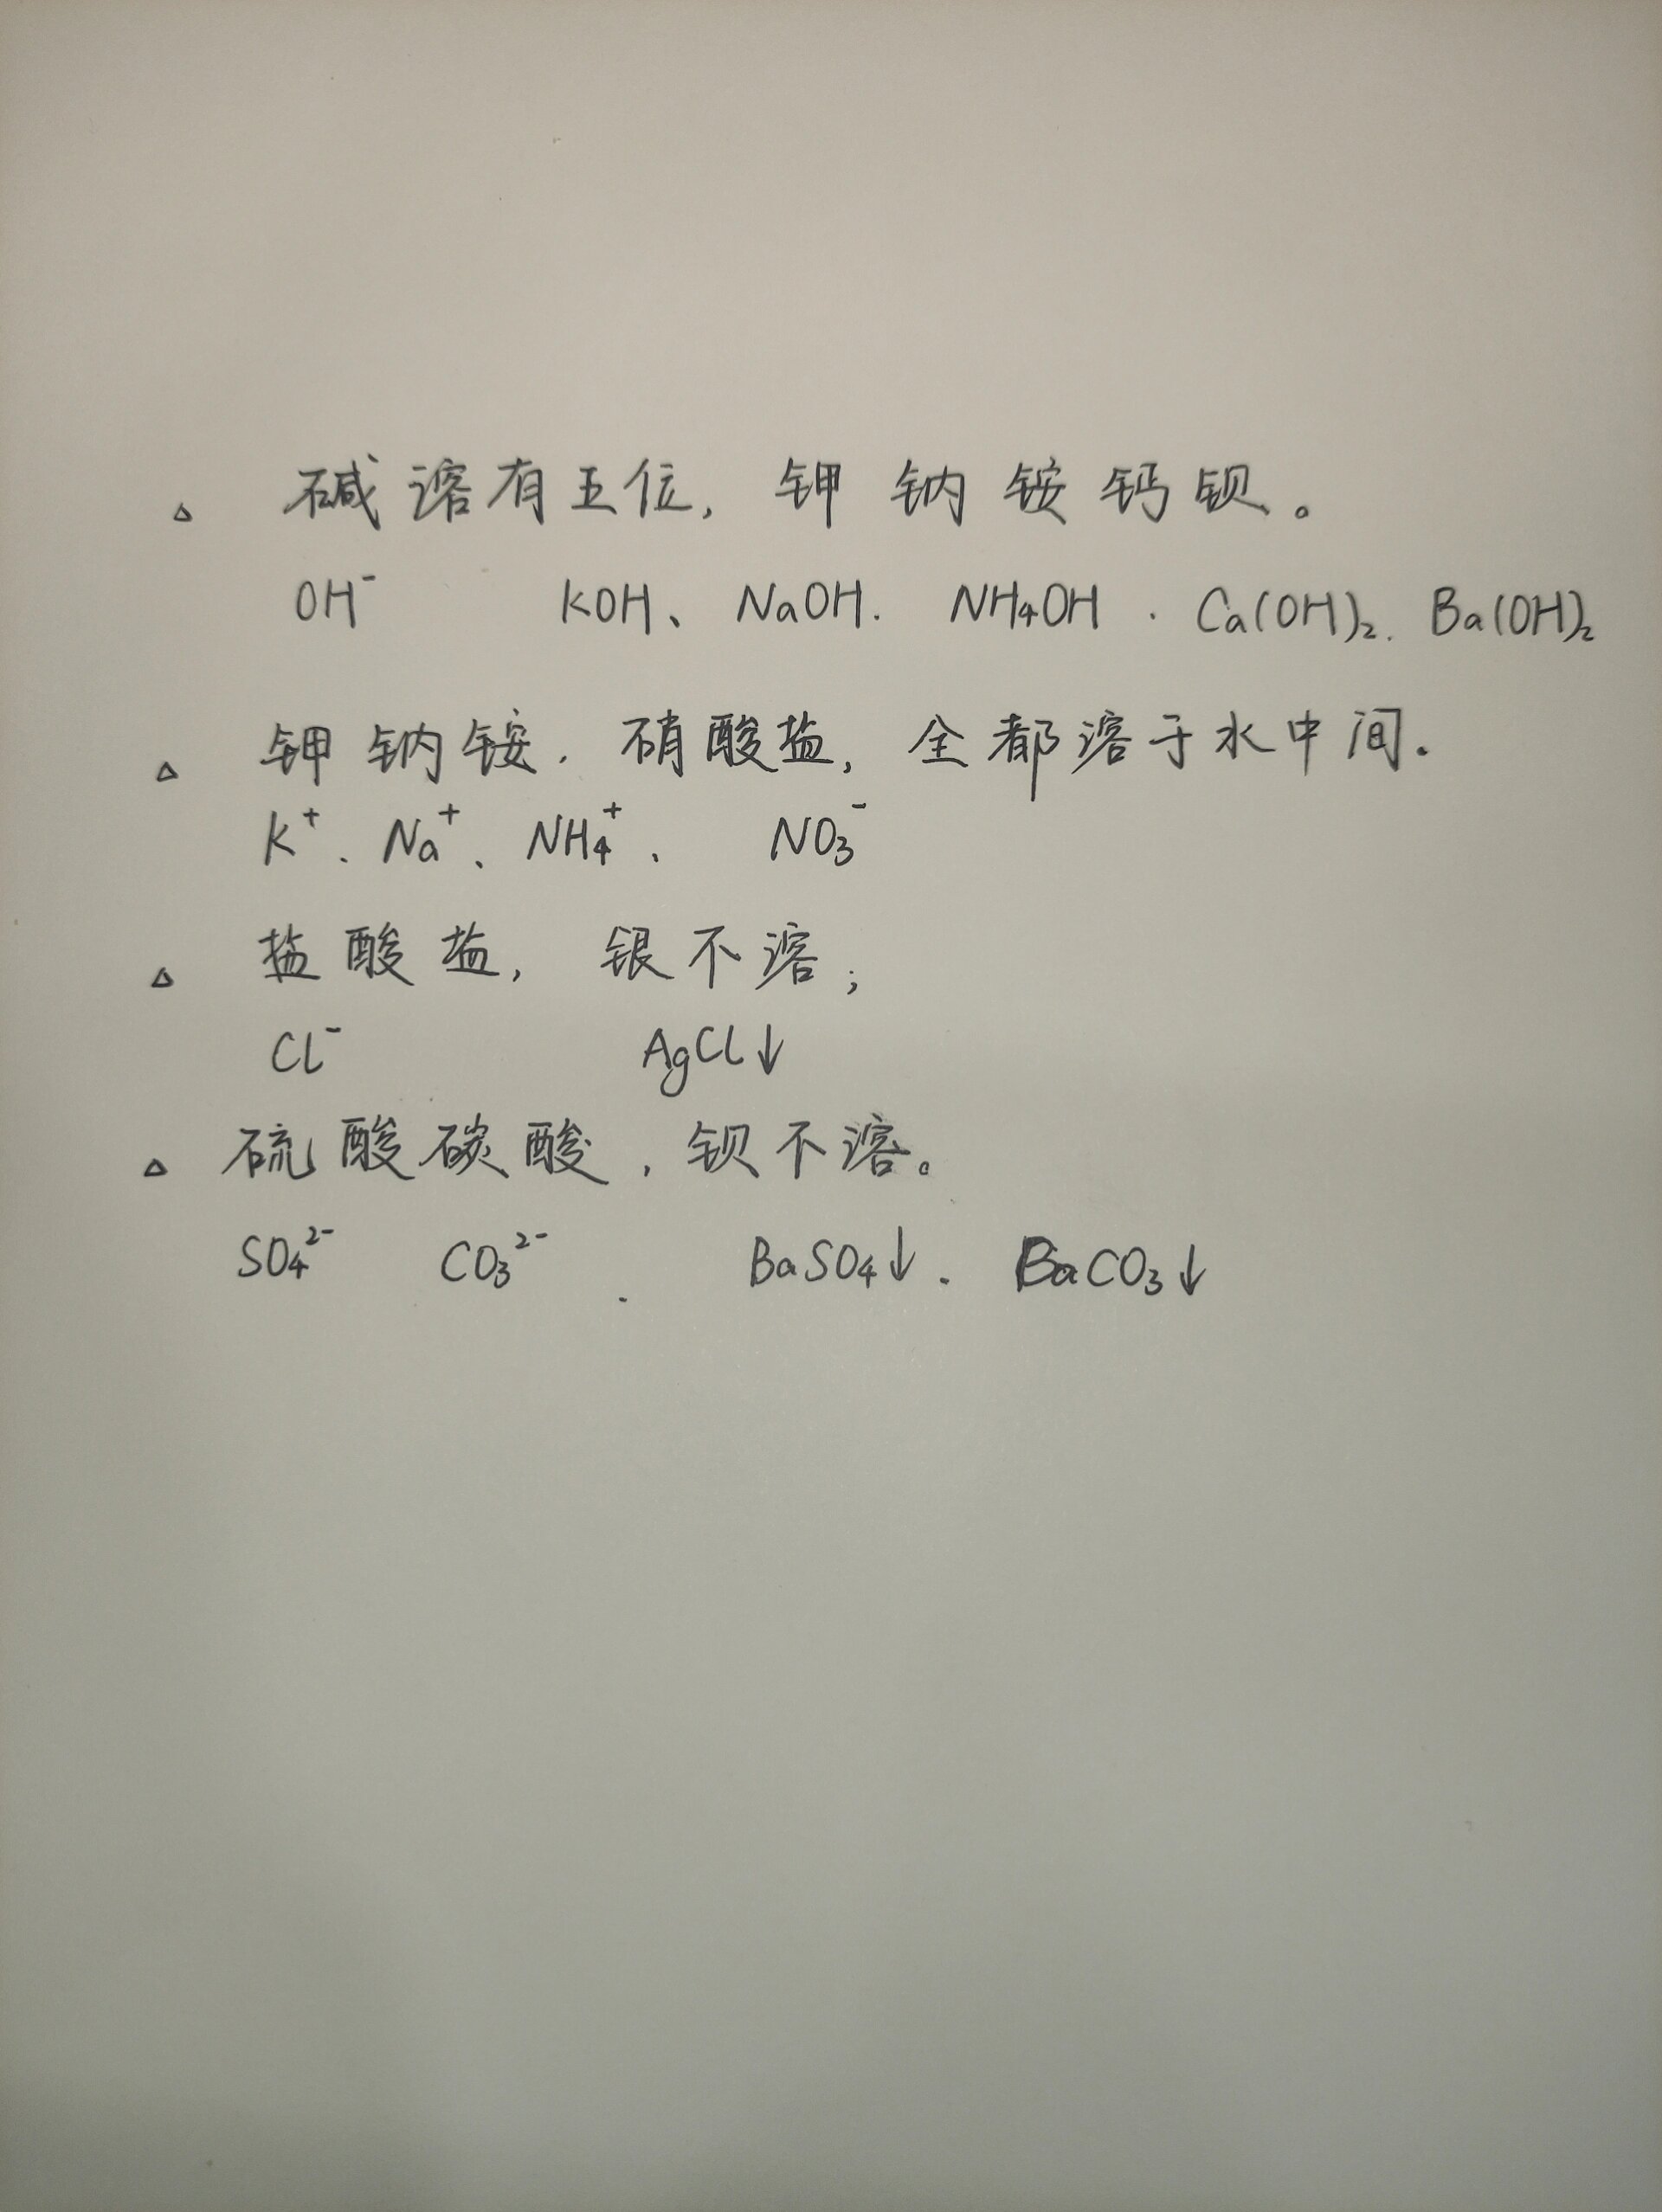 △ 碱溶有五位，钾钠铵钙钡。
OH⁻ KOH、NaOH. NH₄OH . Ca(OH)₂. Ba(OH)₂
△ 钾钠铵. 硝酸盐，全都溶于水中间.
K⁺、Na⁺、NH₄⁺、 NO₃⁻
△ 盐酸盐，银不溶；
Cl⁻ AgCl↓
△ 硫酸碳酸，钡不溶。
SO₄²⁻ CO₃²⁻ . BaSO₄↓. BaCO₃↓